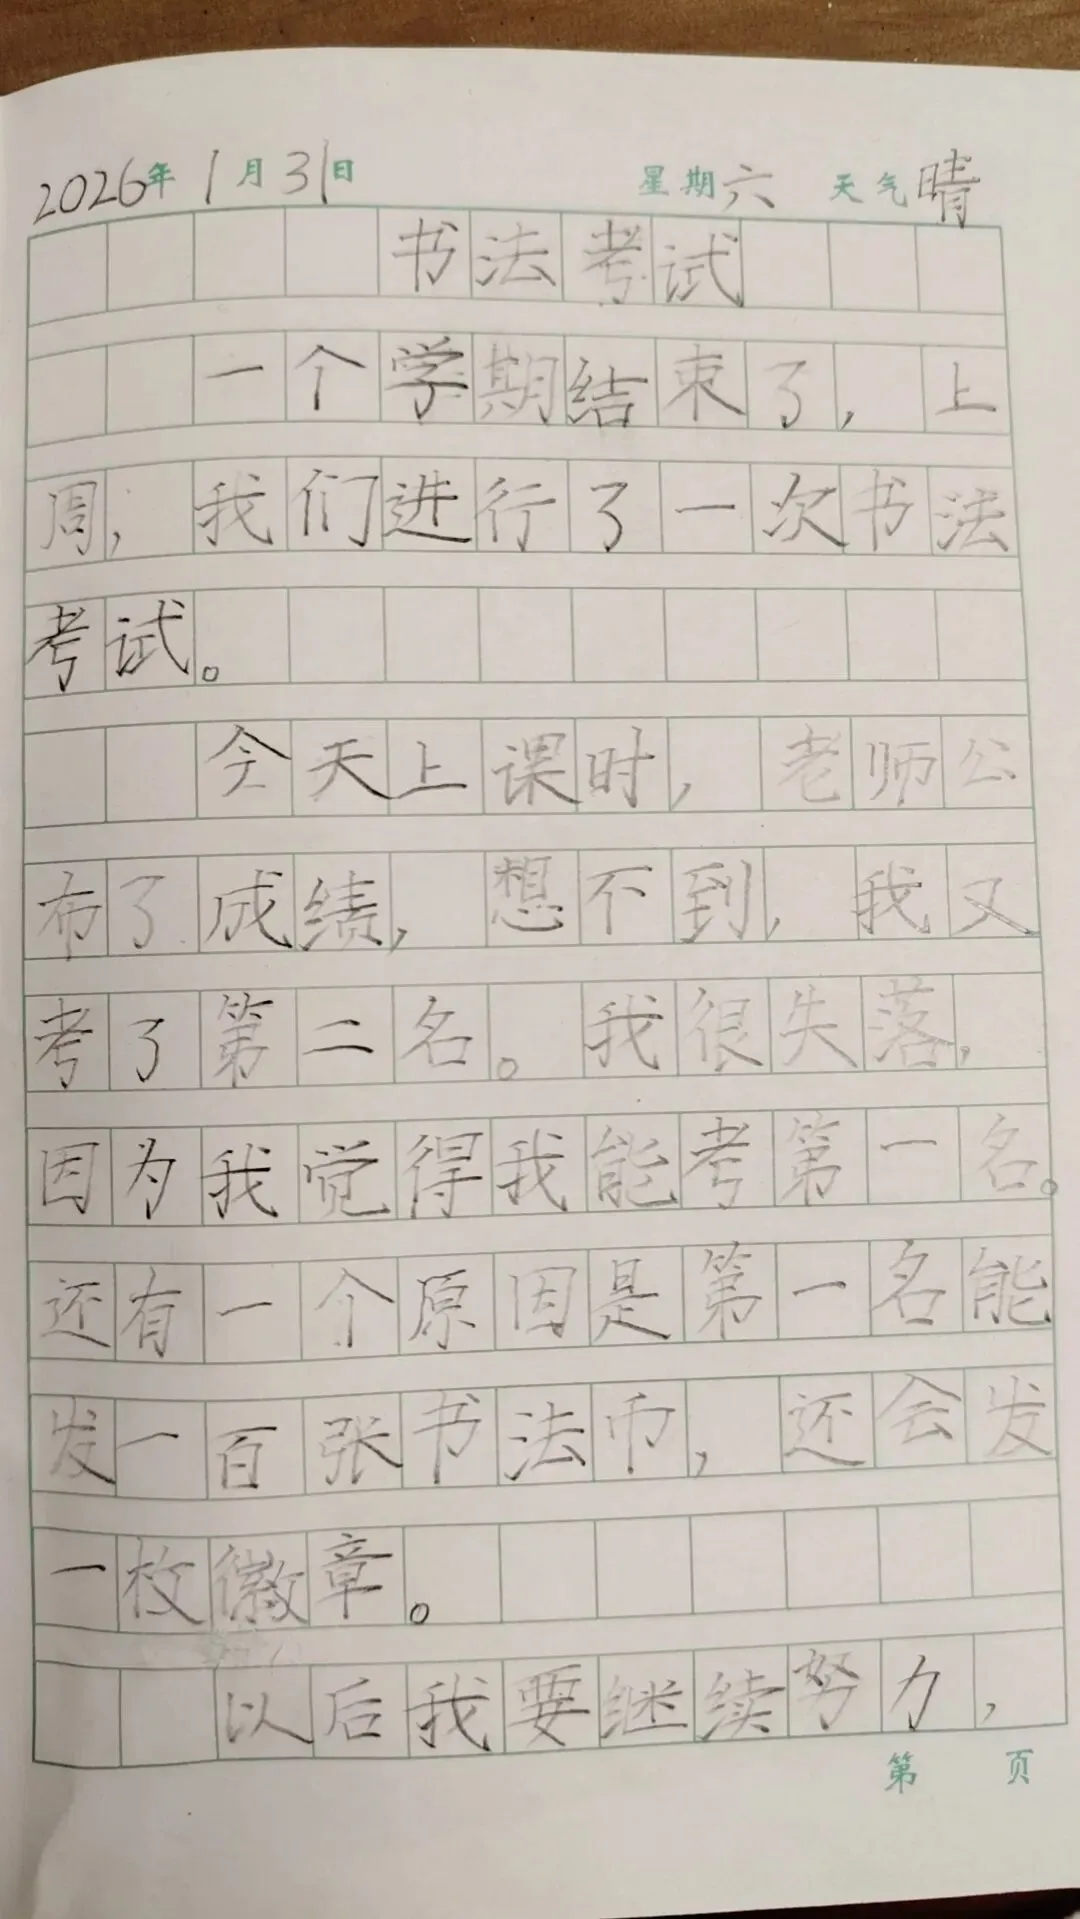 2026年1月31日 星期六 天气晴
书法考试
一个学期结束了，上
周，我们进行了一次书法
考试。
今天上课时，老师公
布了成绩，想不到，我又
考了第二名。我很失落，
因为我觉得我能考第一名。
还有一个原因是第一名能
发一百张书法币，还会发
一枚徽章。
以后我要继续努力，
第 页